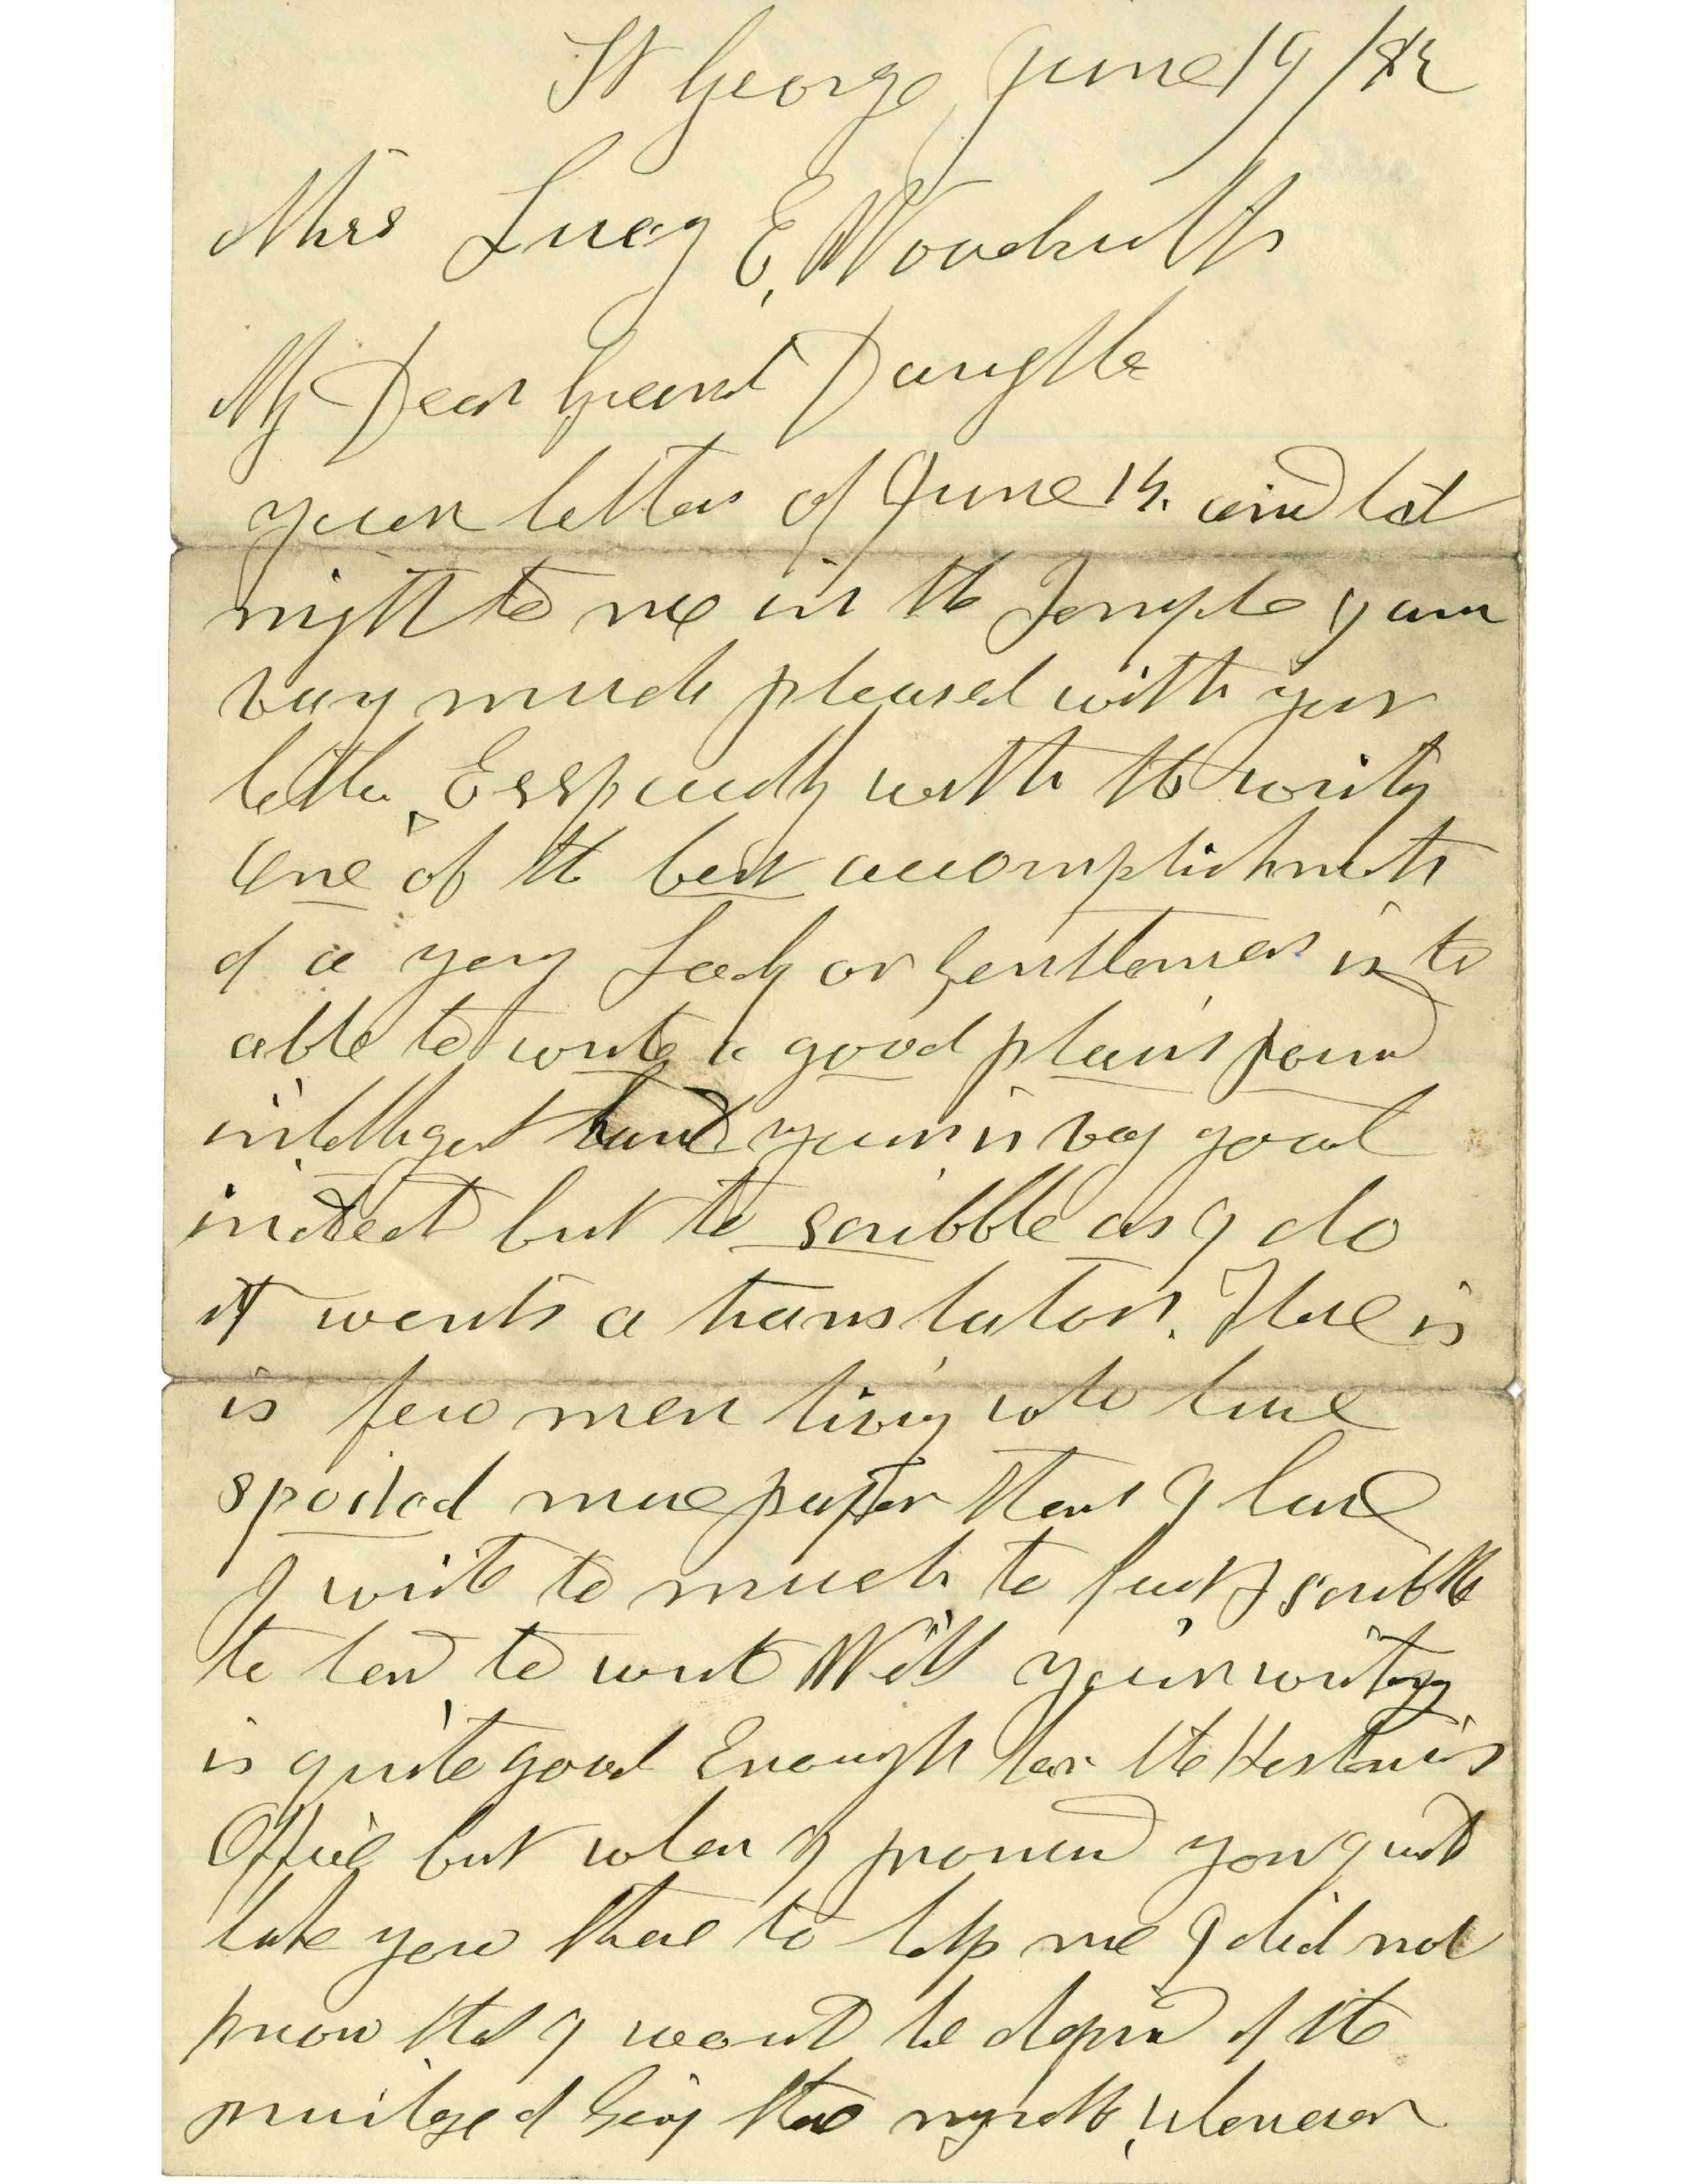 St George June 19 / 8
Miss Lucy E, Woodruff
My Dear Grand Daughter
your letter of June 14. arived last
night to me in the Temple I am
vary much pleased with your
letter Esspecially with the writing
One of the best accomplishments
of a young Lady or Gentleman is to
able to write a good plain round
intelligent hand yours is very good
indeed but to scribble as I do
it wants a translator. There is
is few men living who have
spoiled more paper than I have
I write to much to fast & scribble
to bad to write Well your writing
is quite good Enough for the Historians
Office but when I promised you I would
take you there to help me I did not
know that I would be deprived of the
privilege of being there myself, whenever